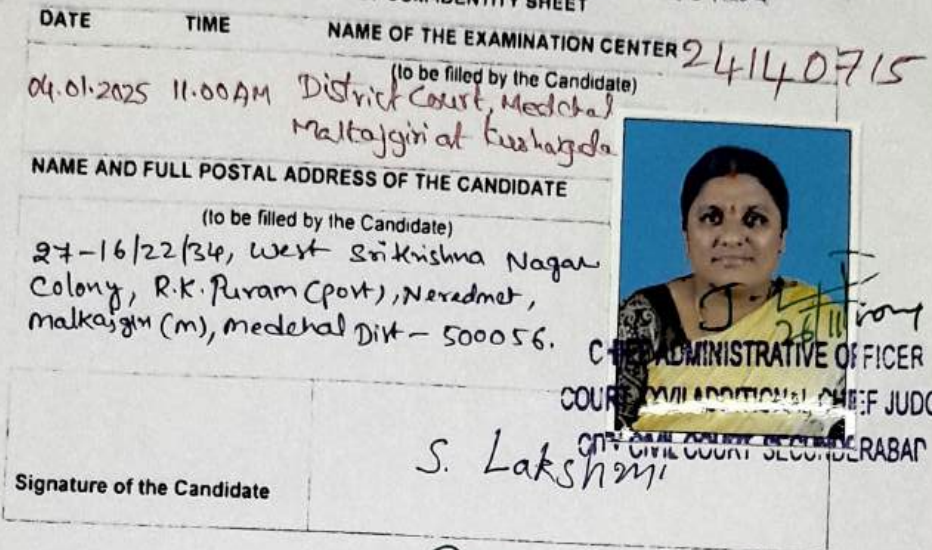 IDENTITY SHEET
DATE TIME NAME OF THE EXAMINATION CENTER 24140715
(to be filled by the Candidate)
04.01.2025 11.00AM District Court, Medchal
Malkajgiri at
NAME AND FULL POSTAL ADDRESS OF THE CANDIDATE
(to be filled by the Candidate)
27-16/22/34, West Sri Krishna Nagar
Colony, R.K. Puram (post), Neredmet,
Malkajgiri (m), medchal Dist - 500056.
26/11
CHIEF ADMINISTRATIVE OFFICER
COURT XVII ADDITIONAL CHIEF JUDG
CITY CIVIL COURT SECUNDERABAD
S. Lakshmi
Signature of the Candidate